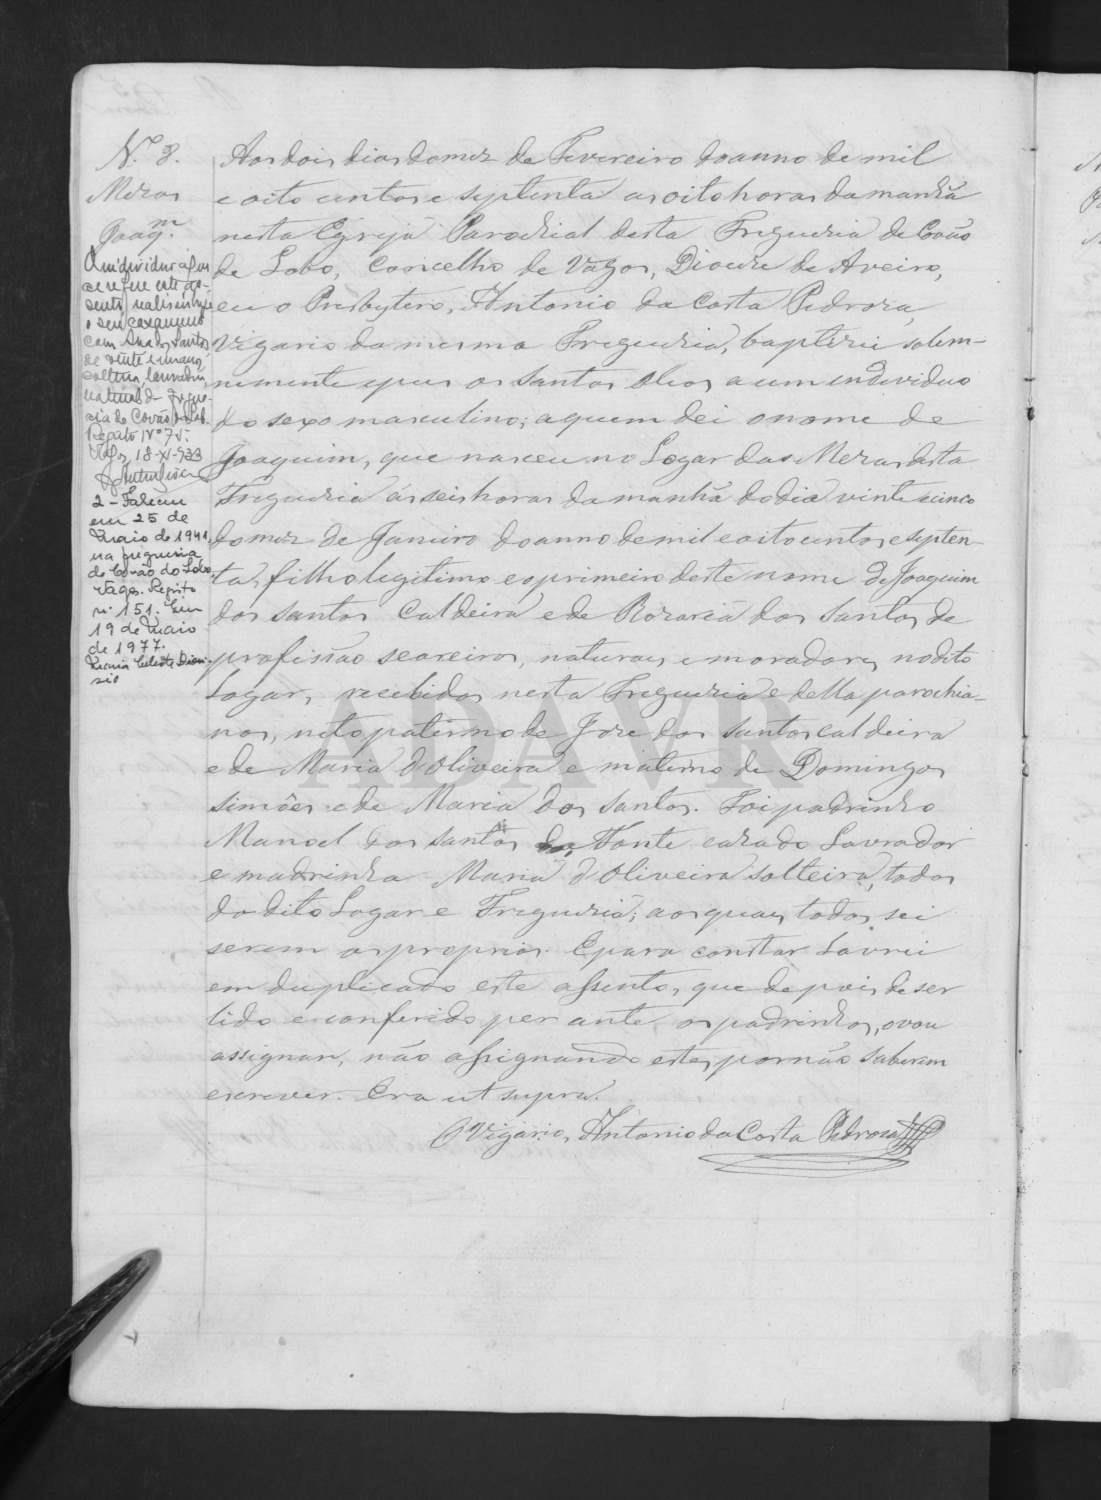 N.º 8.
Mezas
Joaq.m
O individuo a que
se refere este as-
sento realisou hoje
o seu casamento
com Ana dos Santos,
de vinte e um anos,
solteira, lavradeira,
natural da fregue-
sia de Covão do Lobo.
Registo Nº 75.
Vagos, 18-XI-933
2 - Faleceu
em 25 de
Maio de 1941,
na freguesia
de Covão do Lobo,
Vagos. Registo
nº 151. Em
19 de Maio
de 1977.
Maria Celeste Dioni-
sio
Aos dois dias do mez de Fevereiro do anno de mil
e oito centos e septenta as oito horas da manhã
nesta Egreja Parochial desta Freguezia de Covão
de Lobo, Concelho de Vagos, Diocese de Aveiro,
eu o Presbytero, Antonio da Costa Pedroza,
Vigario da mesma Freguezia, baptizei solem-
nemente e puz os santos oleos a um individuo
do sexo masculino; a quem dei o nome de
Joaquim, que nasceu no Logar das Mezas desta
Freguezia ás seis horas da manhã do dia vinte e cinco
do mez de Janeiro do anno de mil e oito centos e septen-
ta, filho legitimo e o primeiro deste nome de Joaquim
dos santos Caldeira e de Rozaria dos Santos de
profissão seareiros, naturaes e moradores no dito
Logar, recebidos nesta Freguezia e della parochia-
nos, neto paterno de Joze dos santos caldeira
e de Maria d'Oliveira e materno de Domingos
simões e de Maria dos santos. Foi padrinho
Manoel dos santos da Fonte cazado Lavrador
e madrinha Maria d'Oliveira solteira, todos
do dito Logar e Freguezia; aos quaes todos sei
serem os proprios. E para constar Lavrei
em duplicado este assento, que depois de ser
lido e conferido per ante os padrinhos, o vou
assignar, não assignando estes por não saberem
escrever. Era ut supra.
O Vigario, Antonio da Costa Pedroza
ADAVR